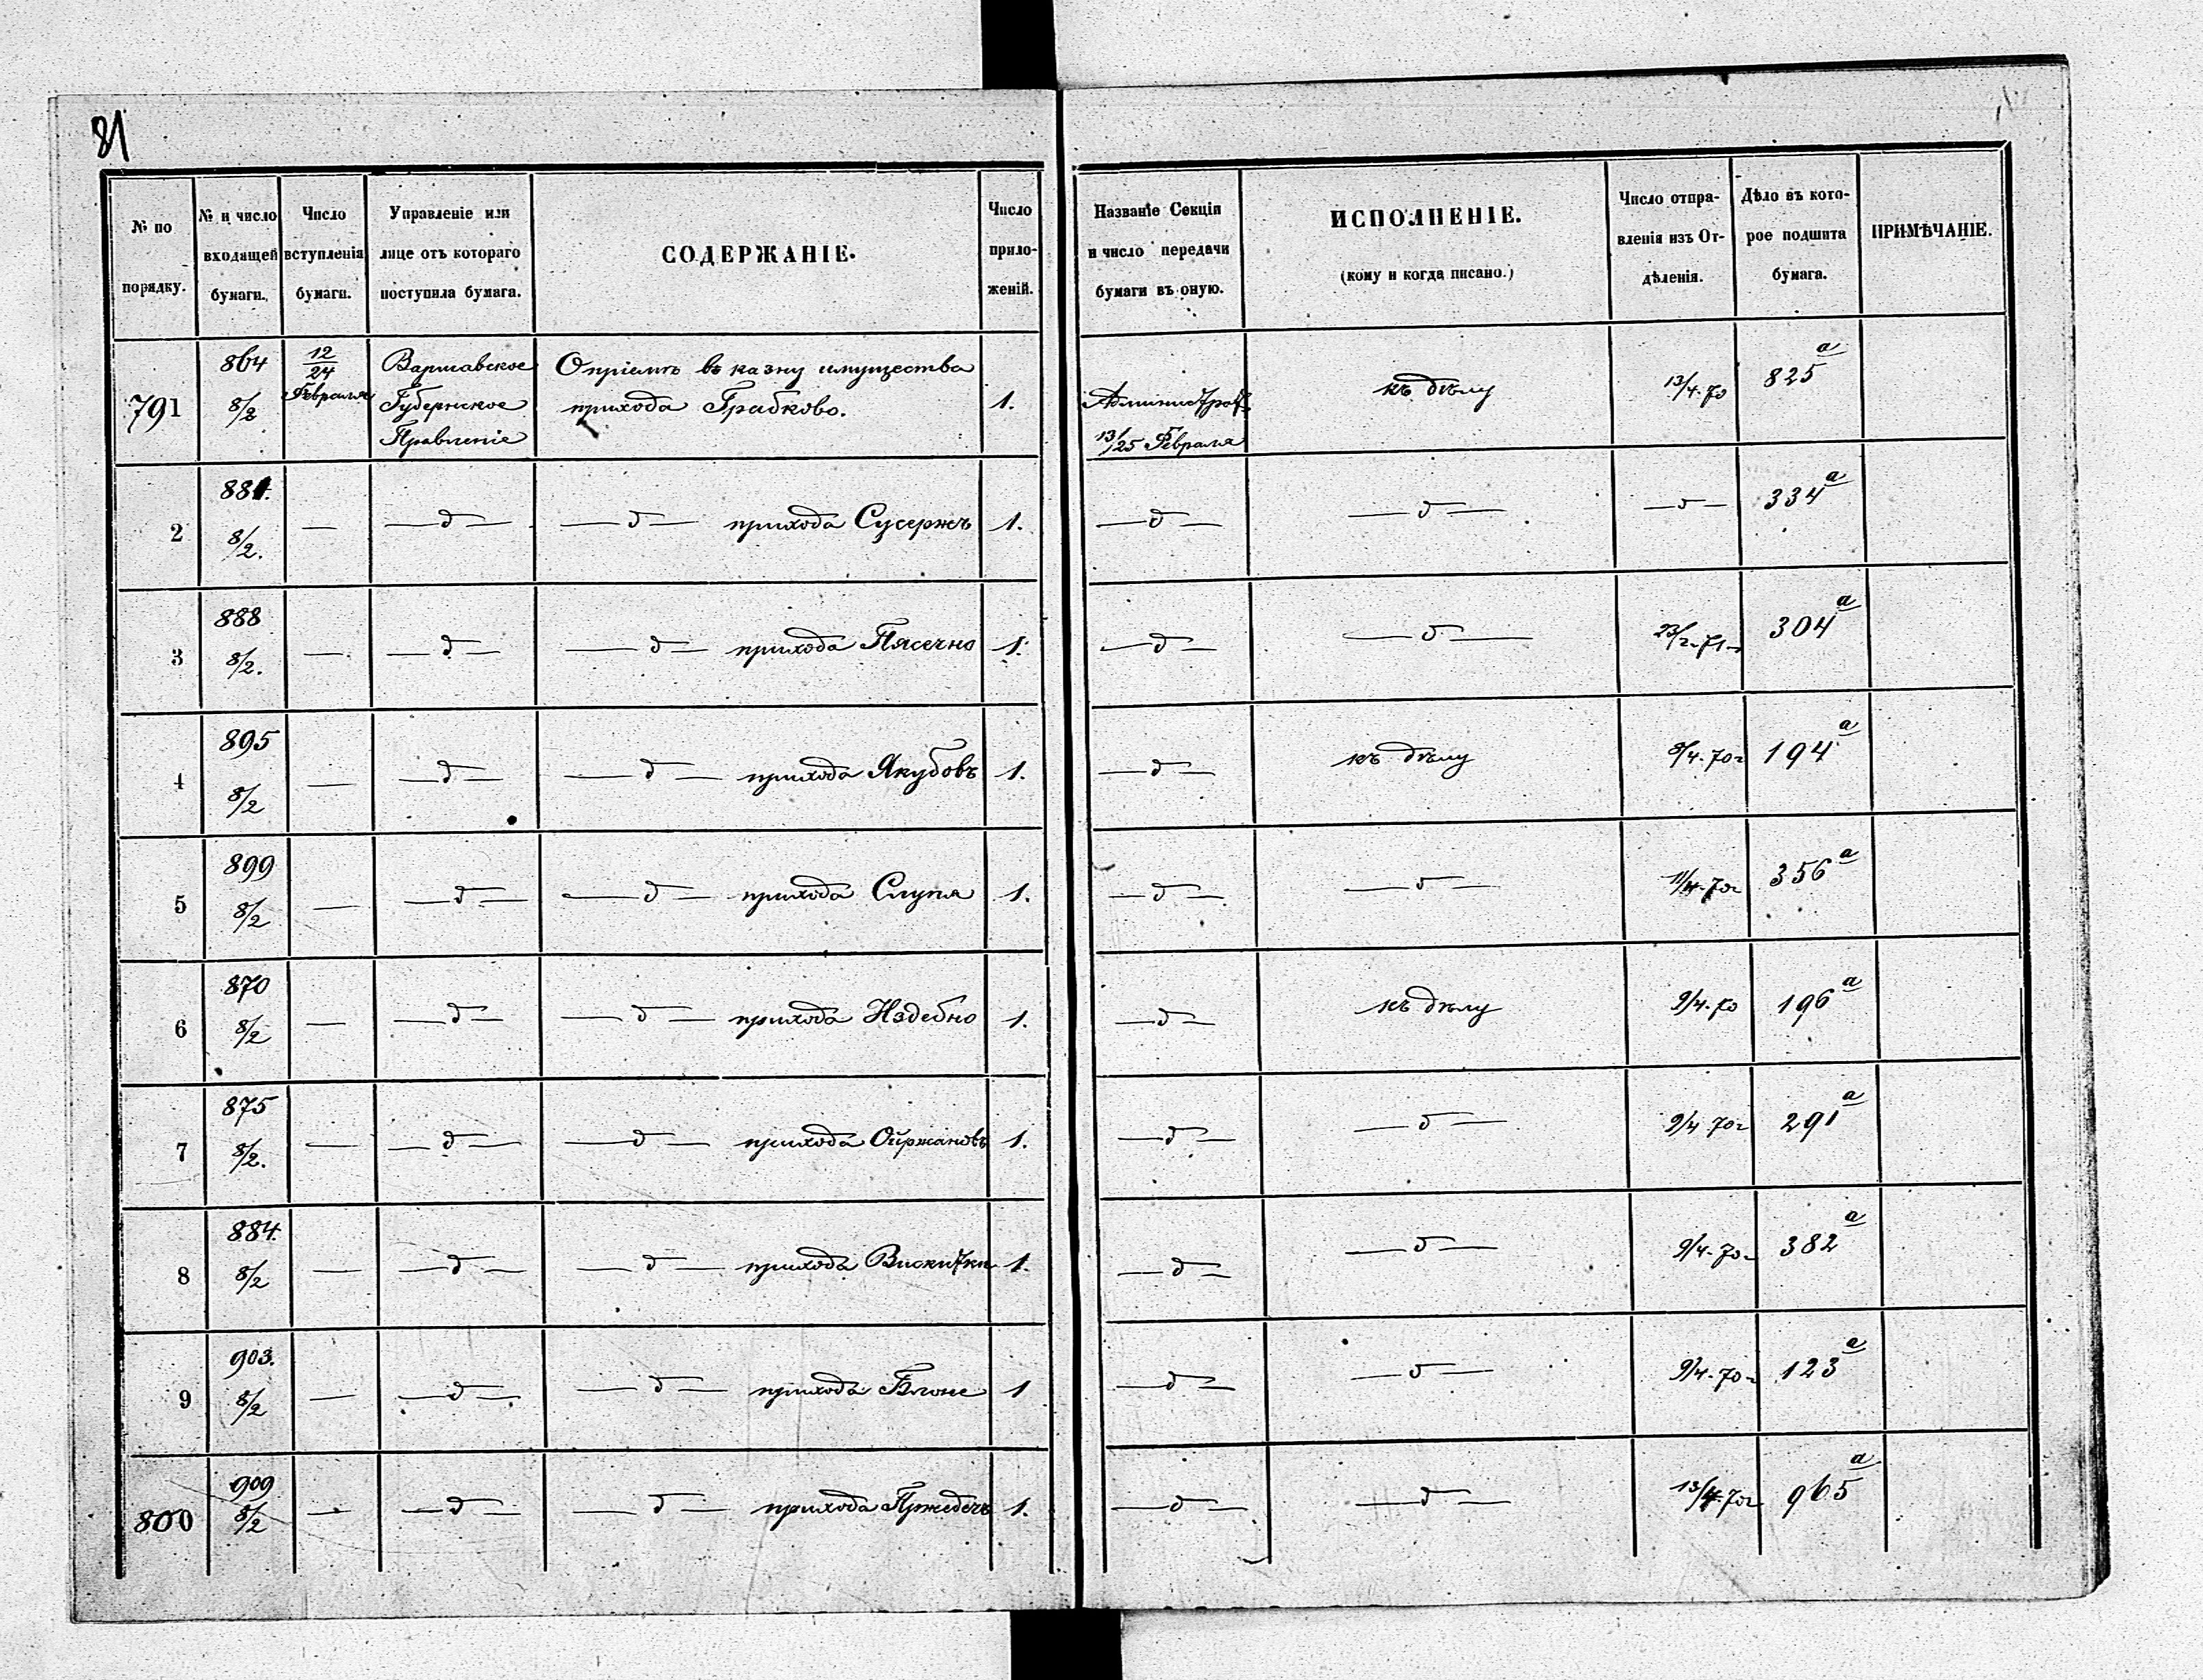 81
№ по порядку.
№ и число входящей бумаги.
Число вступленія бумаги.
Управленіе или лице отъ котораго поступила бумага.
СОДЕРЖАНІЕ.
Число приложеній.
Названіе Секціи и число передачи бумаги въ оную.
ИСПОЛНЕНІЕ.
(кому и когда писано.)
Число отправленія изъ Отдѣленія.
Дѣло въ которое подшита бумага.
ПРИМѢЧАНІЕ.
791 864 8/2 12/24 Февраля Варшавское Губернское Правленіе О пріемѣ въ казну имущества прихода Грабково. 1. 13/25 Февраля къ дѣлу 13/4.70 825 а
2 881. 8/2. — — д — — д — прихода Сусержъ 1. — д — — д — — д — 334 а
3 888 8/2. — — д — — д — прихода Пясечно 1. — д — — д — 23/2.71 304 а
4 895 8/2 — — д — — д — прихода Якубовъ 1. — д — къ дѣлу 8/4.70г 194 а
5 899 8/2 — — д — — д — прихода Слупя 1. — д — — д — 11/4.70г 356 а
6 870 8/2 — — д — — д — прихода Издебно 1. — д — къ дѣлу 9/4.70 196 а
7 875 8/2. — — д — — д — прихода Ойржановъ 1. — д — — д — 9/4.70г 291 а
8 884. 8/2 — — д — — д — прихода Вискитки 1. — д — — д — 9/4.70 382 а
9 903. 8/2 — — д — — д — прихода Блоне 1 — д — — д — 9/4.70 123 а
800 909 8/2 — — д — — д — прихода Пржедечъ 1. — д — — д — 13/4.70г 965 а